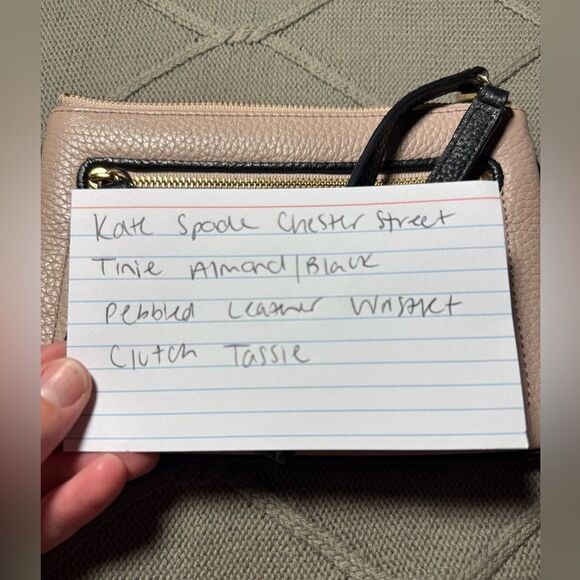 Kate Spade Chester Street
Tinie Almond/Black
Pebbled Leather Wristlet
Clutch Tassle